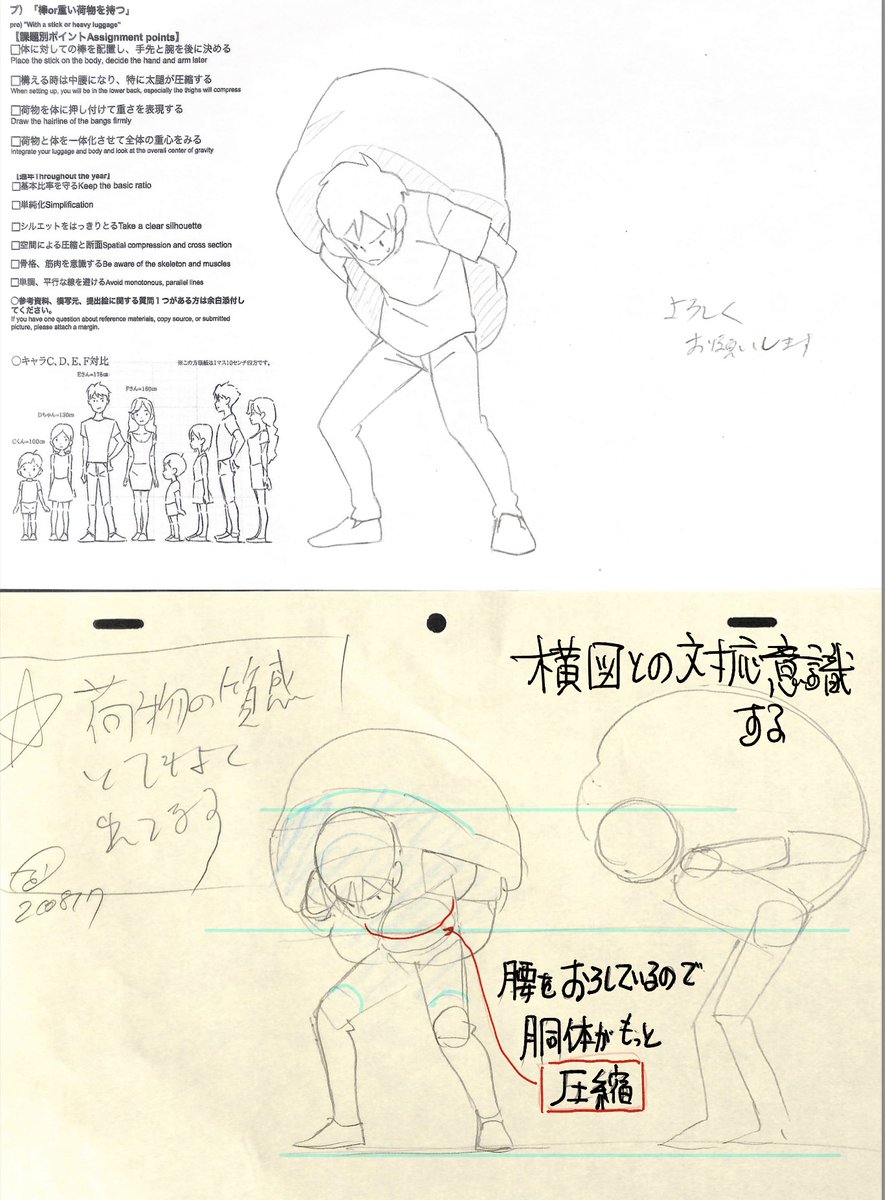 プ）「棒or重い荷物を持つ」
pro) "With a stick or heavy luggage"
【課題別ポイントAssignment points】
□体に対しての棒を配置し、手先と腕を後に決める
Place the stick on the body, decide the hand and arm later
□構える時は中腰になり、特に太腿が圧縮する
When setting up, you will be in the lower back, especially the thighs will compress
□荷物を体に押し付けて重さを表現する
Draw the hairline of the bangs firmly
□荷物と体を一体化させて全体の重心をみる
Integrate your luggage and body and look at the overall center of gravity
【通年Throughout the year】
□基本比率を守るKeep the basic ratio
□単純化Simplification
□シルエットをはっきりとるTake a clear silhouette
□空間による圧縮と断面Spatial compression and cross section
□骨格、筋肉を意識するBe aware of the skeleton and muscles
□単調、平行な線を避けるAvoid monotonous, parallel lines
○参考資料、模写元、提出絵に関する質問１つがある方は余白添付し
てください。
If you have one question about reference materials, copy source, or submitted
picture, please attach a margin.
○キャラC、D、E、F対比
※この方眼紙は1マス10センチ四方です。
Eさん=175cm
Fさん=160cm
Dちゃん=130cm
Cくん=100cm
よろしく
お願いします
横図との対応意識
する
荷物の質感
とてもよく
出てるよ
200817
腰をおろしているので
胴体がもっと
圧縮